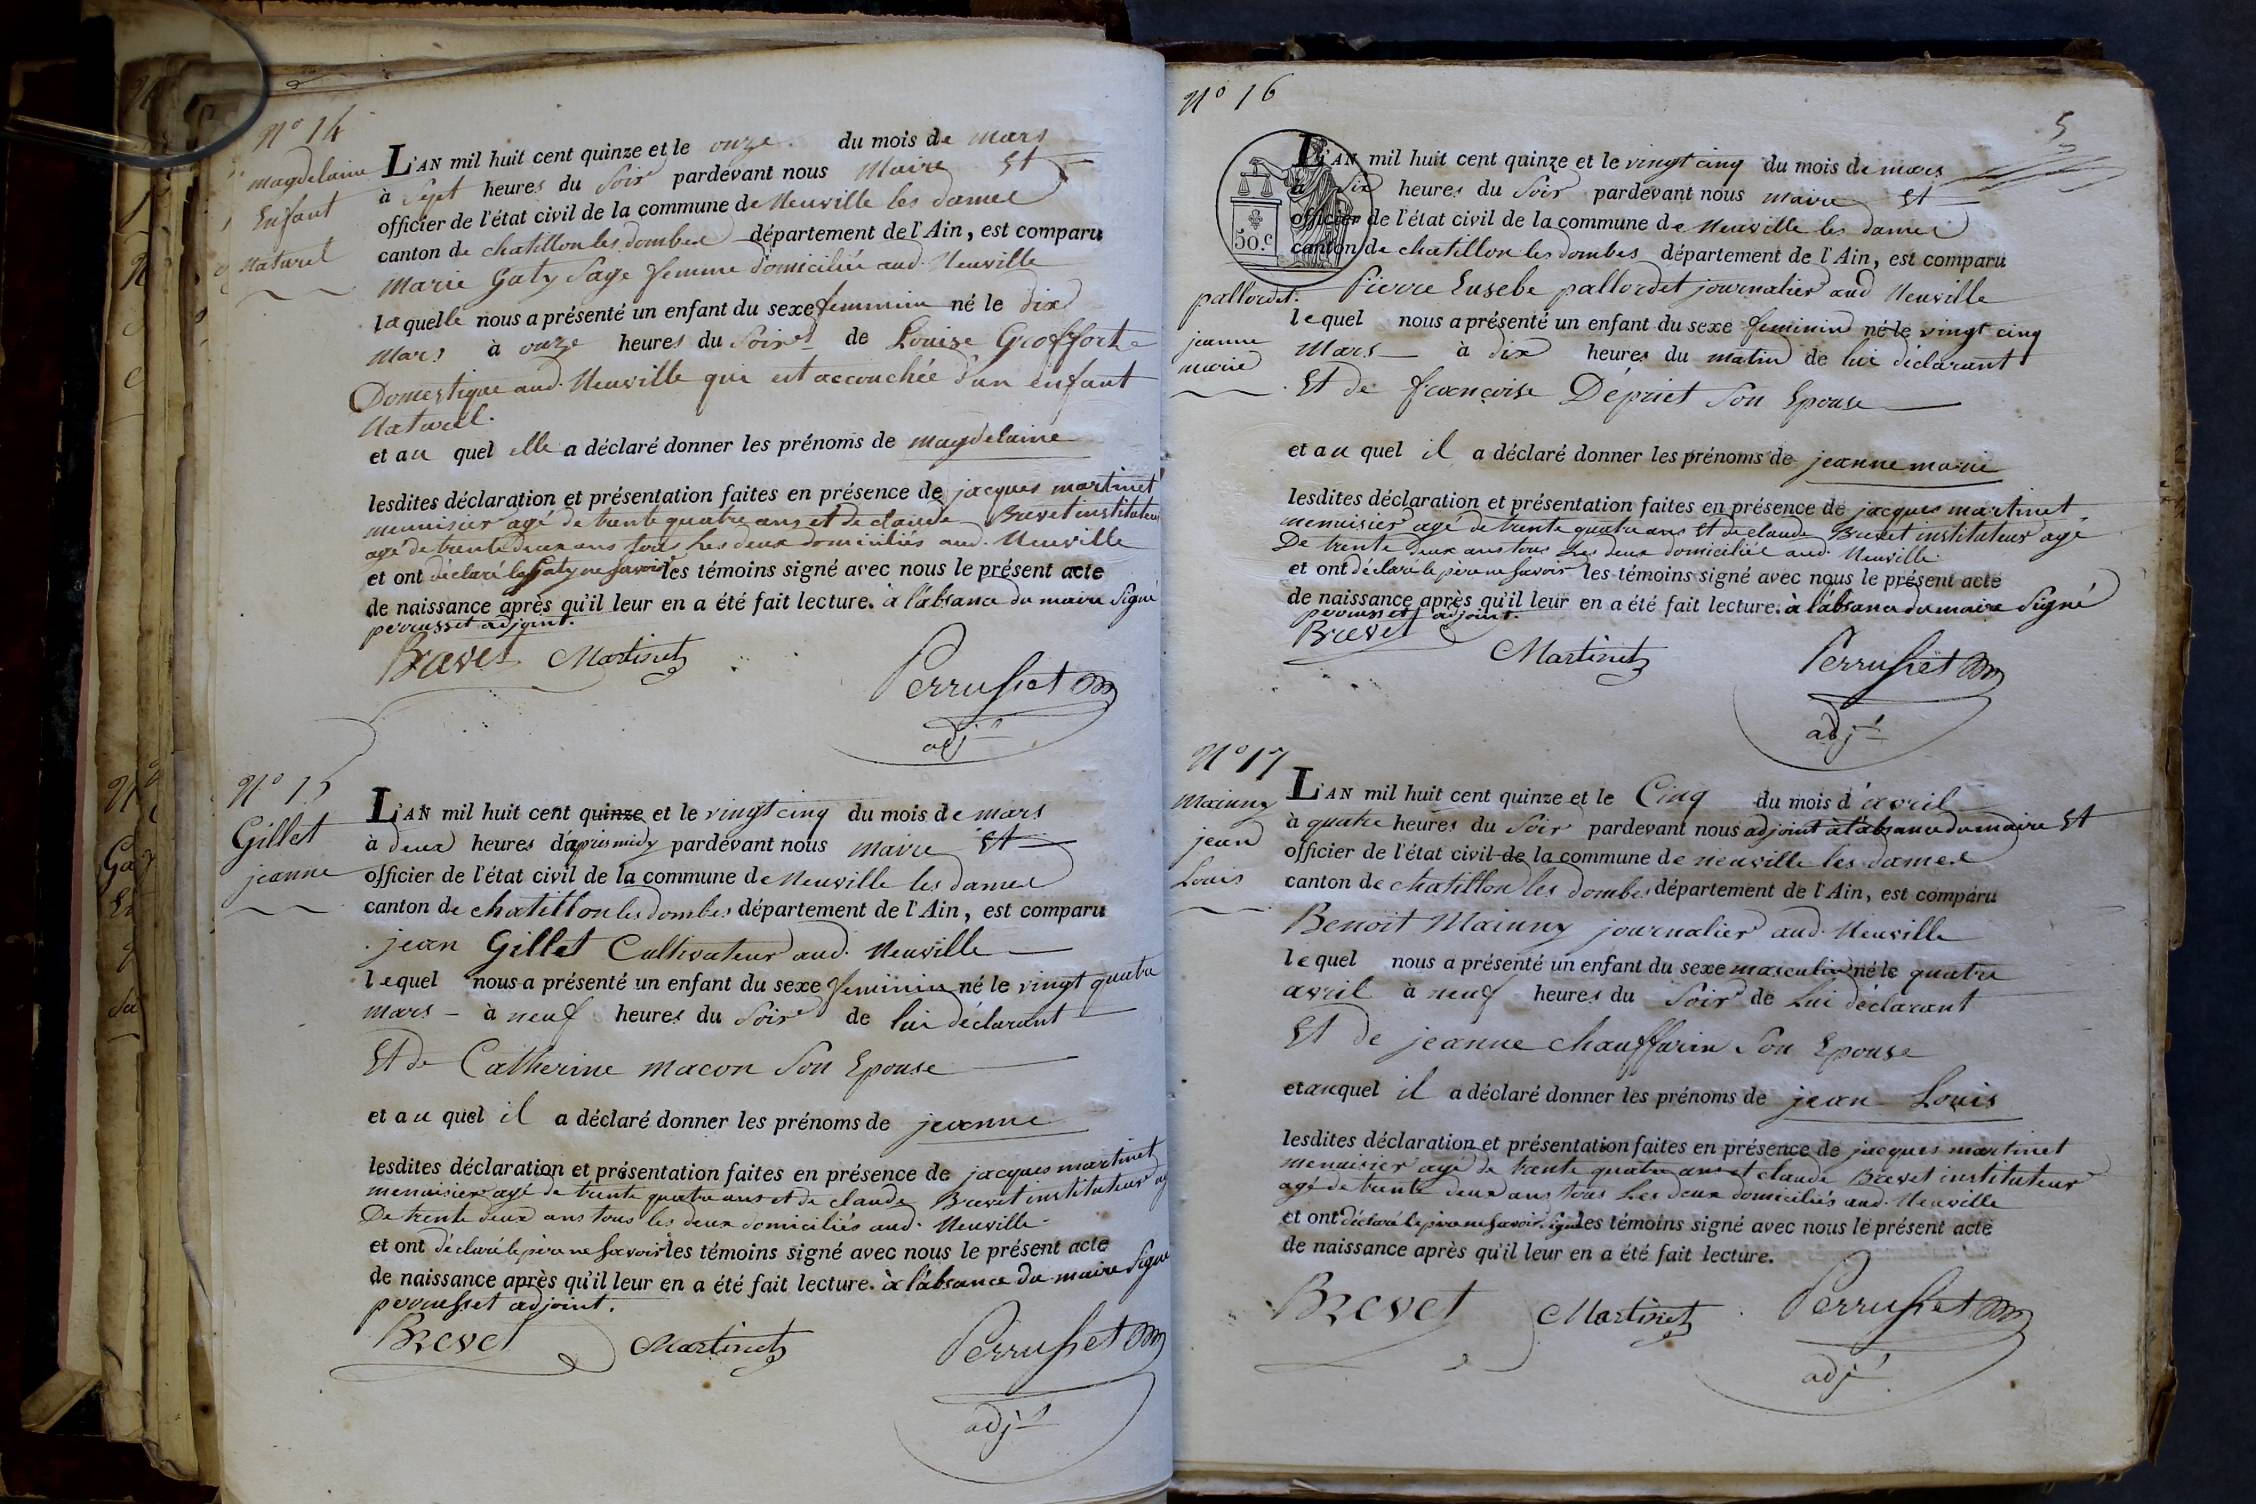 N° 14
magdelaine
Enfant
Naturel
L'AN mil huit cent quinze et le onze du mois de mars
à Sept heures du Soir pardevant nous Maire Et
officier de l'état civil de la commune de Neuville les dames
canton de chatillon les dombes département de l'Ain, est comparu
Marie Gaty Sage femme domiciliée aud. Neuville
laquelle nous a présenté un enfant du sexe feminin né le dix
Mars à onze heures du Soir de Louise Groffort
Domestique aud. Neuville qui est accouchée d'un enfant
Naturel.
et au quel elle a déclaré donner les prénoms de magdelaine
lesdites déclaration et présentation faites en présence de jacques martinet
menuisier agé de trente quatre ans et de claude Brevet instituteur
agé de trente deux ans tous Les deux domiciliés aud. Neuville
et ont déclaré la Gaty ne savoir les témoins signé avec nous le présent acte
de naissance après qu'il leur en a été fait lecture. à l'absance du maire Signé
perrusset adjoint.
Brevet Martinet
Perrusset
adjt
N° 15
Gillet
jeanne
L'AN mil huit cent quinze et le vingt cinq du mois de mars
à deux heures d'après midy pardevant nous maire Et
officier de l'état civil de la commune de Neuville les dames
canton de chatillon les dombes département de l'Ain, est comparu
jean Gillet Cultivateur aud. Neuville
lequel nous a présenté un enfant du sexe feminin né le vingt quatre
mars à neuf heures du Soir de lui déclarant
Et de Catherine macon Son Epouse
et au quel il a déclaré donner les prénoms de jeanne
lesdites déclaration et présentation faites en présence de jacques martinet
menuisier agé de trente quatre ans et de claude Brevet instituteur ag
De trente deux ans tous les deux domiciliés aud. Neuville.
et ont déclaré le père ne Savoir les témoins signé avec nous le présent acte
de naissance après qu'il leur en a été fait lecture. à l'absance du maire Signé
perrusset adjoint.
Brevet Martinet Perrusset
adjt
N° 16
5
50.c
pallordet.
jeanne
marie
L'AN mil huit cent quinze et le vingt cinq du mois de mars
à Six heures du Soir pardevant nous maire Et
officier de l'état civil de la commune de Neuville les dames
canton de chatillon les dombes département de l'Ain, est comparu
Pierre Eusebe pallordet journalier aud Neuville
lequel nous a présenté un enfant du sexe feminin né le vingt cinq
Mars à dix heures du matin de lui déclarant
Et de françoise Dépriet Son Epouse
et au quel il a déclaré donner les prénoms de jeanne marie
lesdites déclaration et présentation faites en présence de jacques martinet
menuisier agé de trente quatre ans Et de claude Brevet instituteur agé
De trente deux ans tous Les deux domiciliés aud. Neuville.
et ont déclaré le père ne Savoir les témoins signé avec nous le présent acte
de naissance après qu'il leur en a été fait lecture. à l'absance du maire Signé
perrusset adjoint.
Brevet
Martinet Perrusset
adjt
N° 17
Mainny
jean
Louis
L'AN mil huit cent quinze et le Cinq du mois d'avril
à quatre heures du Soir pardevant nous adjoint à l'absance du maire Et
officier de l'état civil de la commune de neuville les dames
canton de chatillon les dombes département de l'Ain, est comparu
Benoit Mainny journalier aud. Neuville
lequel nous a présenté un enfant du sexe masculin né le quatre
avril à neuf heures du Soir de Lui déclarant
Et de jeanne chauffarin Son Epouse
et auquel il a déclaré donner les prénoms de jean Louis
lesdites déclaration et présentation faites en présence de jacques martinet
menuisier agé de trente quatre ans et claude Brevet instituteur
agé de trente deux ans tous Les deux domiciliés aud. Neuville
et ont déclaré le père ne Savoir Signé les témoins signé avec nous le présent acte
de naissance après qu'il leur en a été fait lecture.
Brevet Martinet Perrusset
adjt